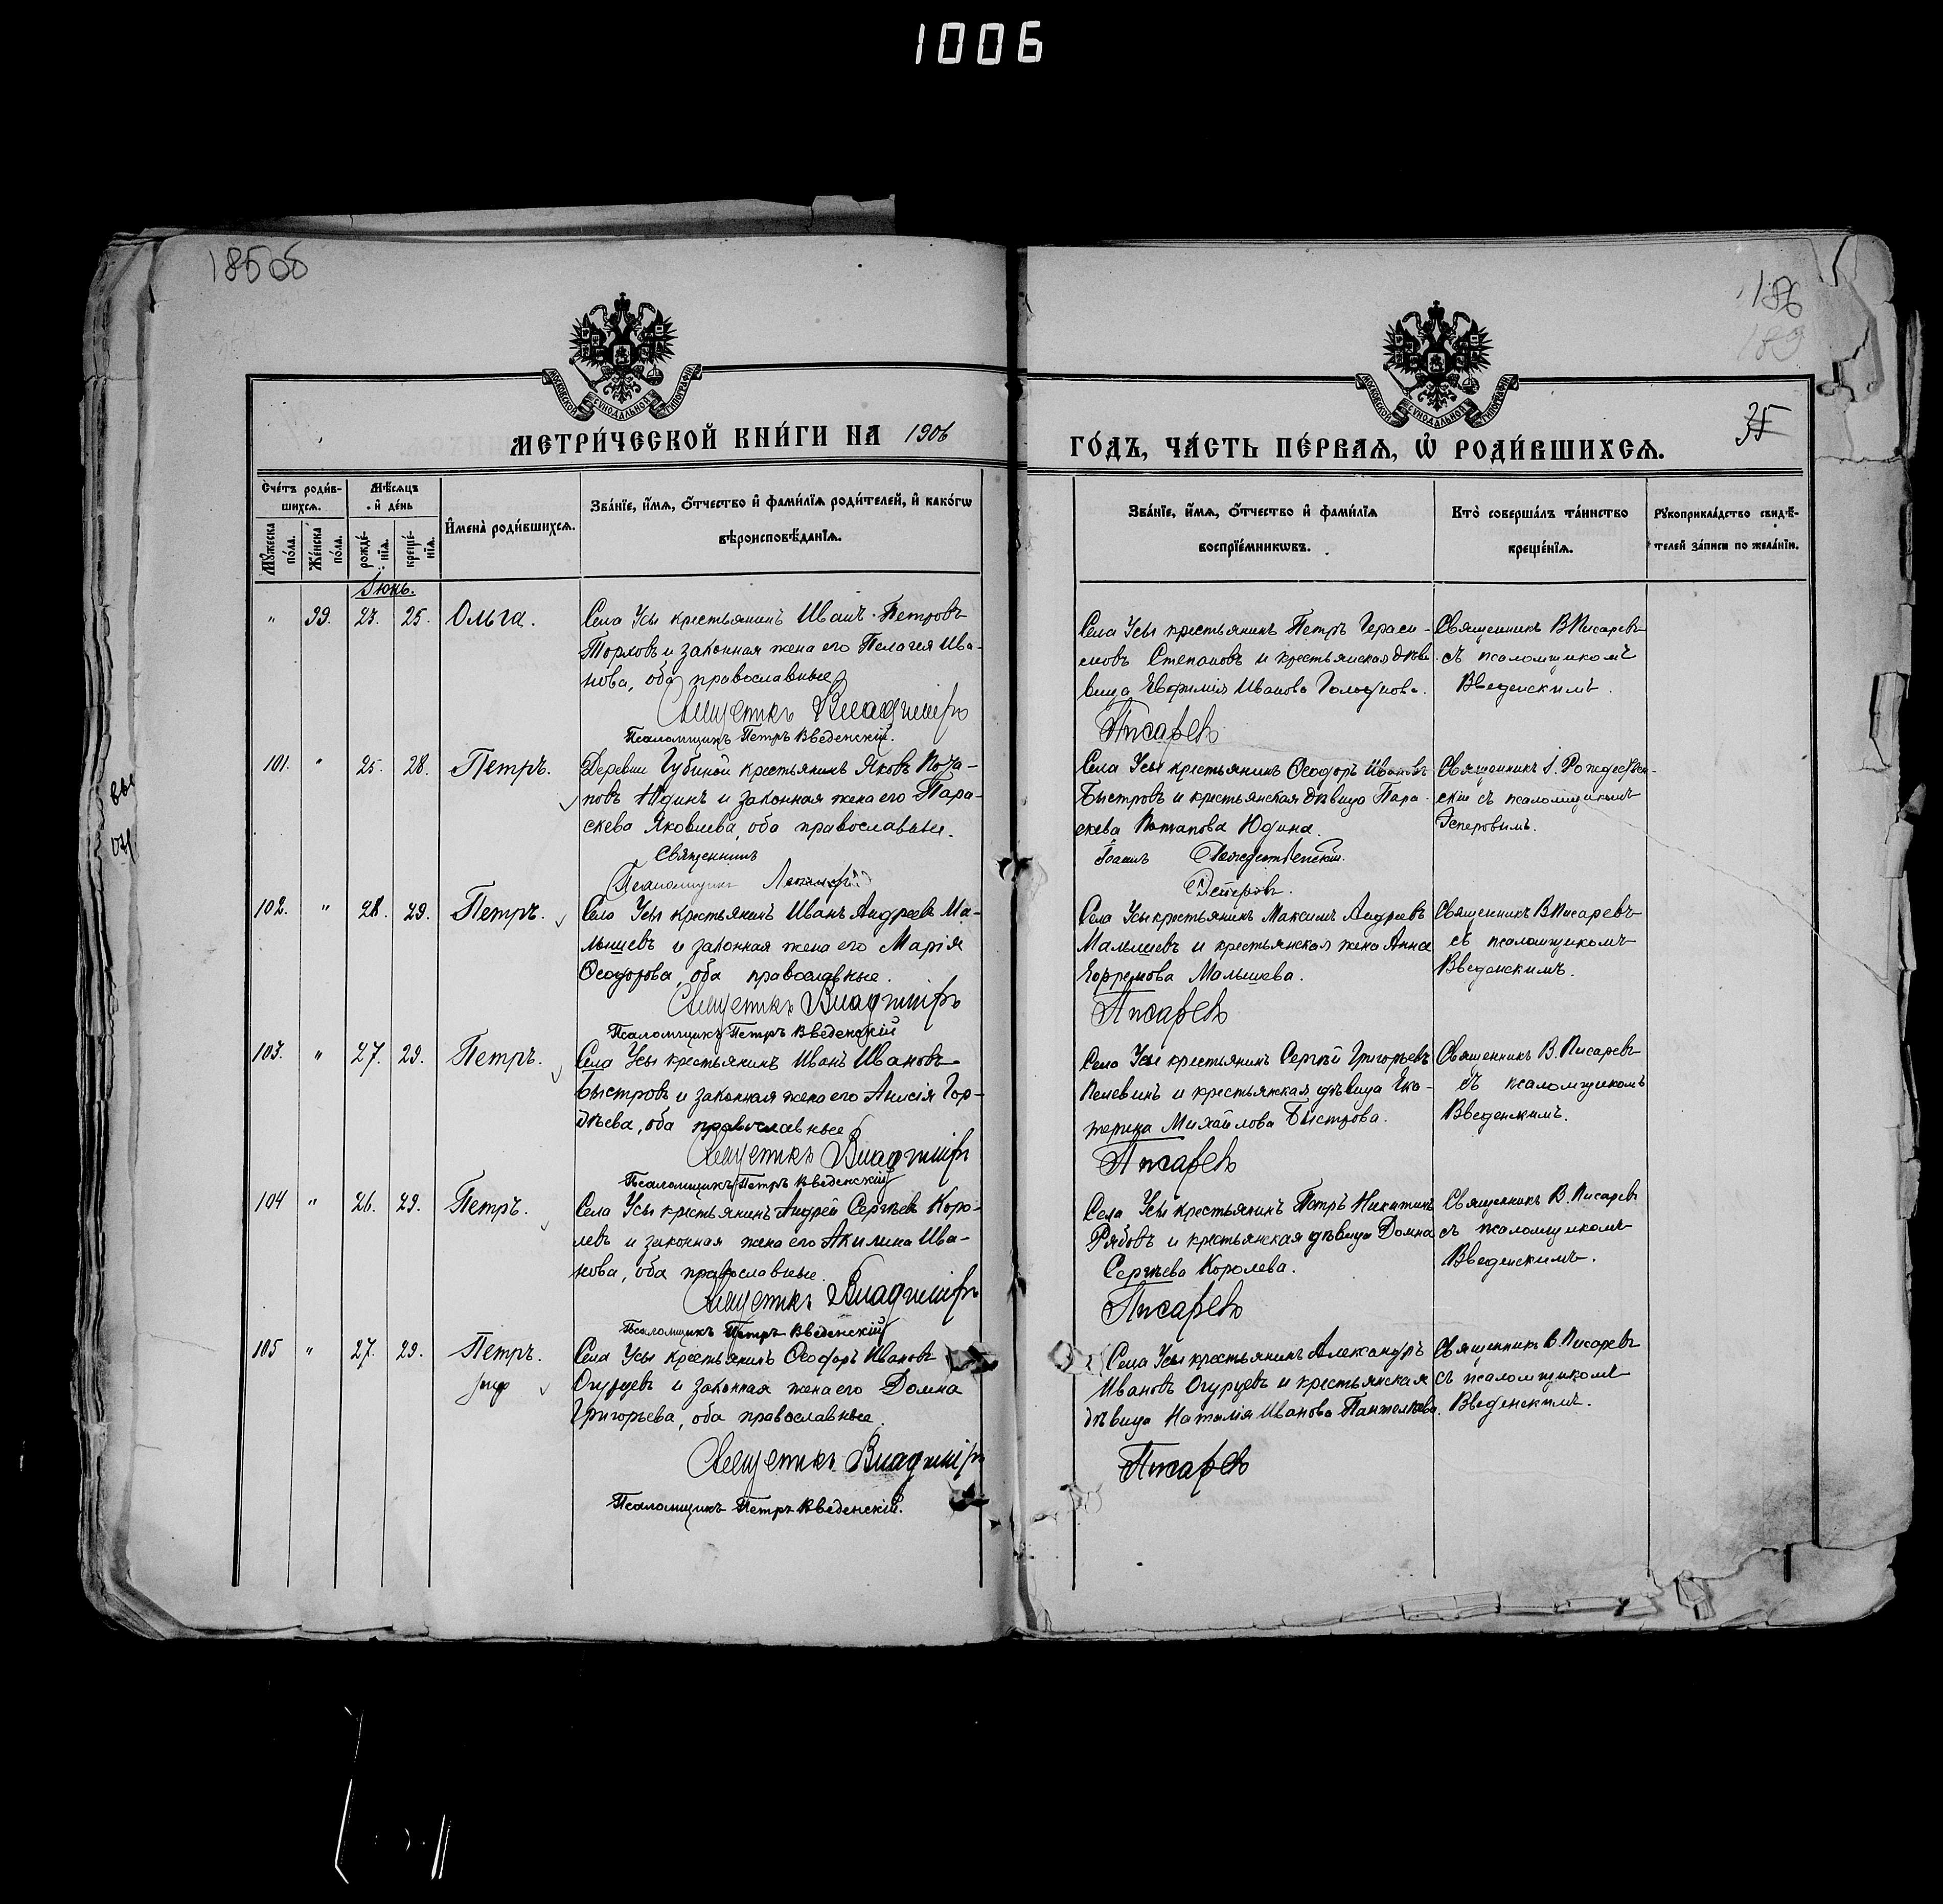 1006
185об
186
189
35
МОСКОВСКОЙ СѴНОДАЛЬНОЙ ТИПОГРАФІИ
МОСКОВСКОЙ СѴНОДАЛЬНОЙ ТИПОГРАФІИ
МЕТРИ́ЧЕСКОЙ КНИ́ГИ НА 1906
ГО́ДЪ, ЧА́СТЬ ПЕ́РВАѦ, Ѡ҆ РОДИ́ВШИХСѦ.
Сче́тъ роди́в-
шихсѧ.
Мꙋ́жеска по́ла.
Же́нска по́ла.
Мѣ́сѧцъ
и҆ де́нь
рожде́-
нїѧ.
креще́-
нїѧ.
И҆мена̀ роди́вшихсѧ.
Зва́нїе, и҆́мѧ, ѻ҆́тчество и҆ фами́лїѧ роди́телей, и҆ како́гѡ
вѣроисповѣ́данїѧ.
Зва́нїе, и҆́мѧ, ѻ҆́тчество и҆ фами́лїѧ
воспрїе́мникѡвъ.
Кто̀ соверша́лъ та́инство
креще́нїѧ.
Рꙋкоприкла́дство свидѣ́-
телей за́писи по жела́нїю.
Іюнь.
" 99. 23. 25. Ольга.
Села Усы крестьянинъ Иванъ Петровъ
Торховъ и законная жена его Пелагея Ива-
нова, оба православные
Священникъ Владиміръ
Псаломщикъ Петръ Введенскій.
Села Усы крестьянинъ Петръ Гераси-
мовъ Степановъ и крестьянская дѣ-
вица Евфимія Иванова
Писаревъ
Священникъ В Писаревъ
съ псаломщикомъ
Введенскимъ.
101. " 25. 28. Петръ.
Деревни Губиной крестьянинъ Яковъ Пота-
повъ Юдинъ и законная жена его Пара-
скева Яковлева, оба православные.
Священникъ
Псаломщикъ
Села Усы крестьянинъ Ѳеодоръ Ивановъ
Быстровъ и крестьянская дѣвица Пара-
скева Потапова Юдина.
Іоаннъ Рождественскій.
Эсперовъ.
Священникъ І. Рождествен-
скій съ псаломщикомъ
Эсперовымъ.
102. " 28. 29. Петръ.
Села Усы крестьянинъ Иванъ Андреевъ Ма-
лышевъ и законная жена его Марія
Ѳеодорова, оба православные.
Священникъ Владиміръ
Псаломщикъ Петръ Введенскій
Села Усы крестьянинъ Максимъ Андреевъ
Малышевъ и крестьянская жена Анна
Ефремова Малышева.
Писаревъ
Священникъ В Писаревъ
съ псаломщикомъ
Введенскимъ.
103. " 27. 29. Петръ.
Села Усы крестьянинъ Иванъ Ивановъ
Быстровъ и законная жена его Анисія Гор-
дѣева, оба православные
Священникъ Владиміръ
Псаломщикъ Петръ Введенскій
Села Усы крестьянинъ Сергѣй Григорьевъ
Пелевинъ и крестьянская дѣвица Ека-
терина Михайлова Быстрова.
Писаревъ
Священникъ В. Писаревъ
съ псаломщикомъ
Введенскимъ.
104 " 26. 29. Петръ.
Села Усы крестьянинъ Андрей Сергѣевъ Коро-
левъ и законная жена его Акилина Ива-
нова, оба православные.
Священникъ Владиміръ
Псаломщикъ Петръ Введенскій
Села Усы крестьянинъ Петръ Никитинъ
Рябовъ и крестьянская дѣвица Домна
Сергѣева Королева.
Писаревъ
Священникъ В. Писаревъ
съ псаломщикомъ
Введенскимъ.
105 " 27. 29. Петръ.
Села Усы крестьянинъ Ѳеодоръ Ивановъ
Огурцевъ и законная жена его Домна
Григорьева, оба православные.
Священникъ Владиміръ
Псаломщикъ Петръ Введенскій.
Села Усы крестьянинъ Александръ
Ивановъ Огурцевъ и крестьянская
дѣвица Наталія Иванова
Писаревъ
Священникъ В. Писаревъ
съ псаломщикомъ
Введенскимъ.